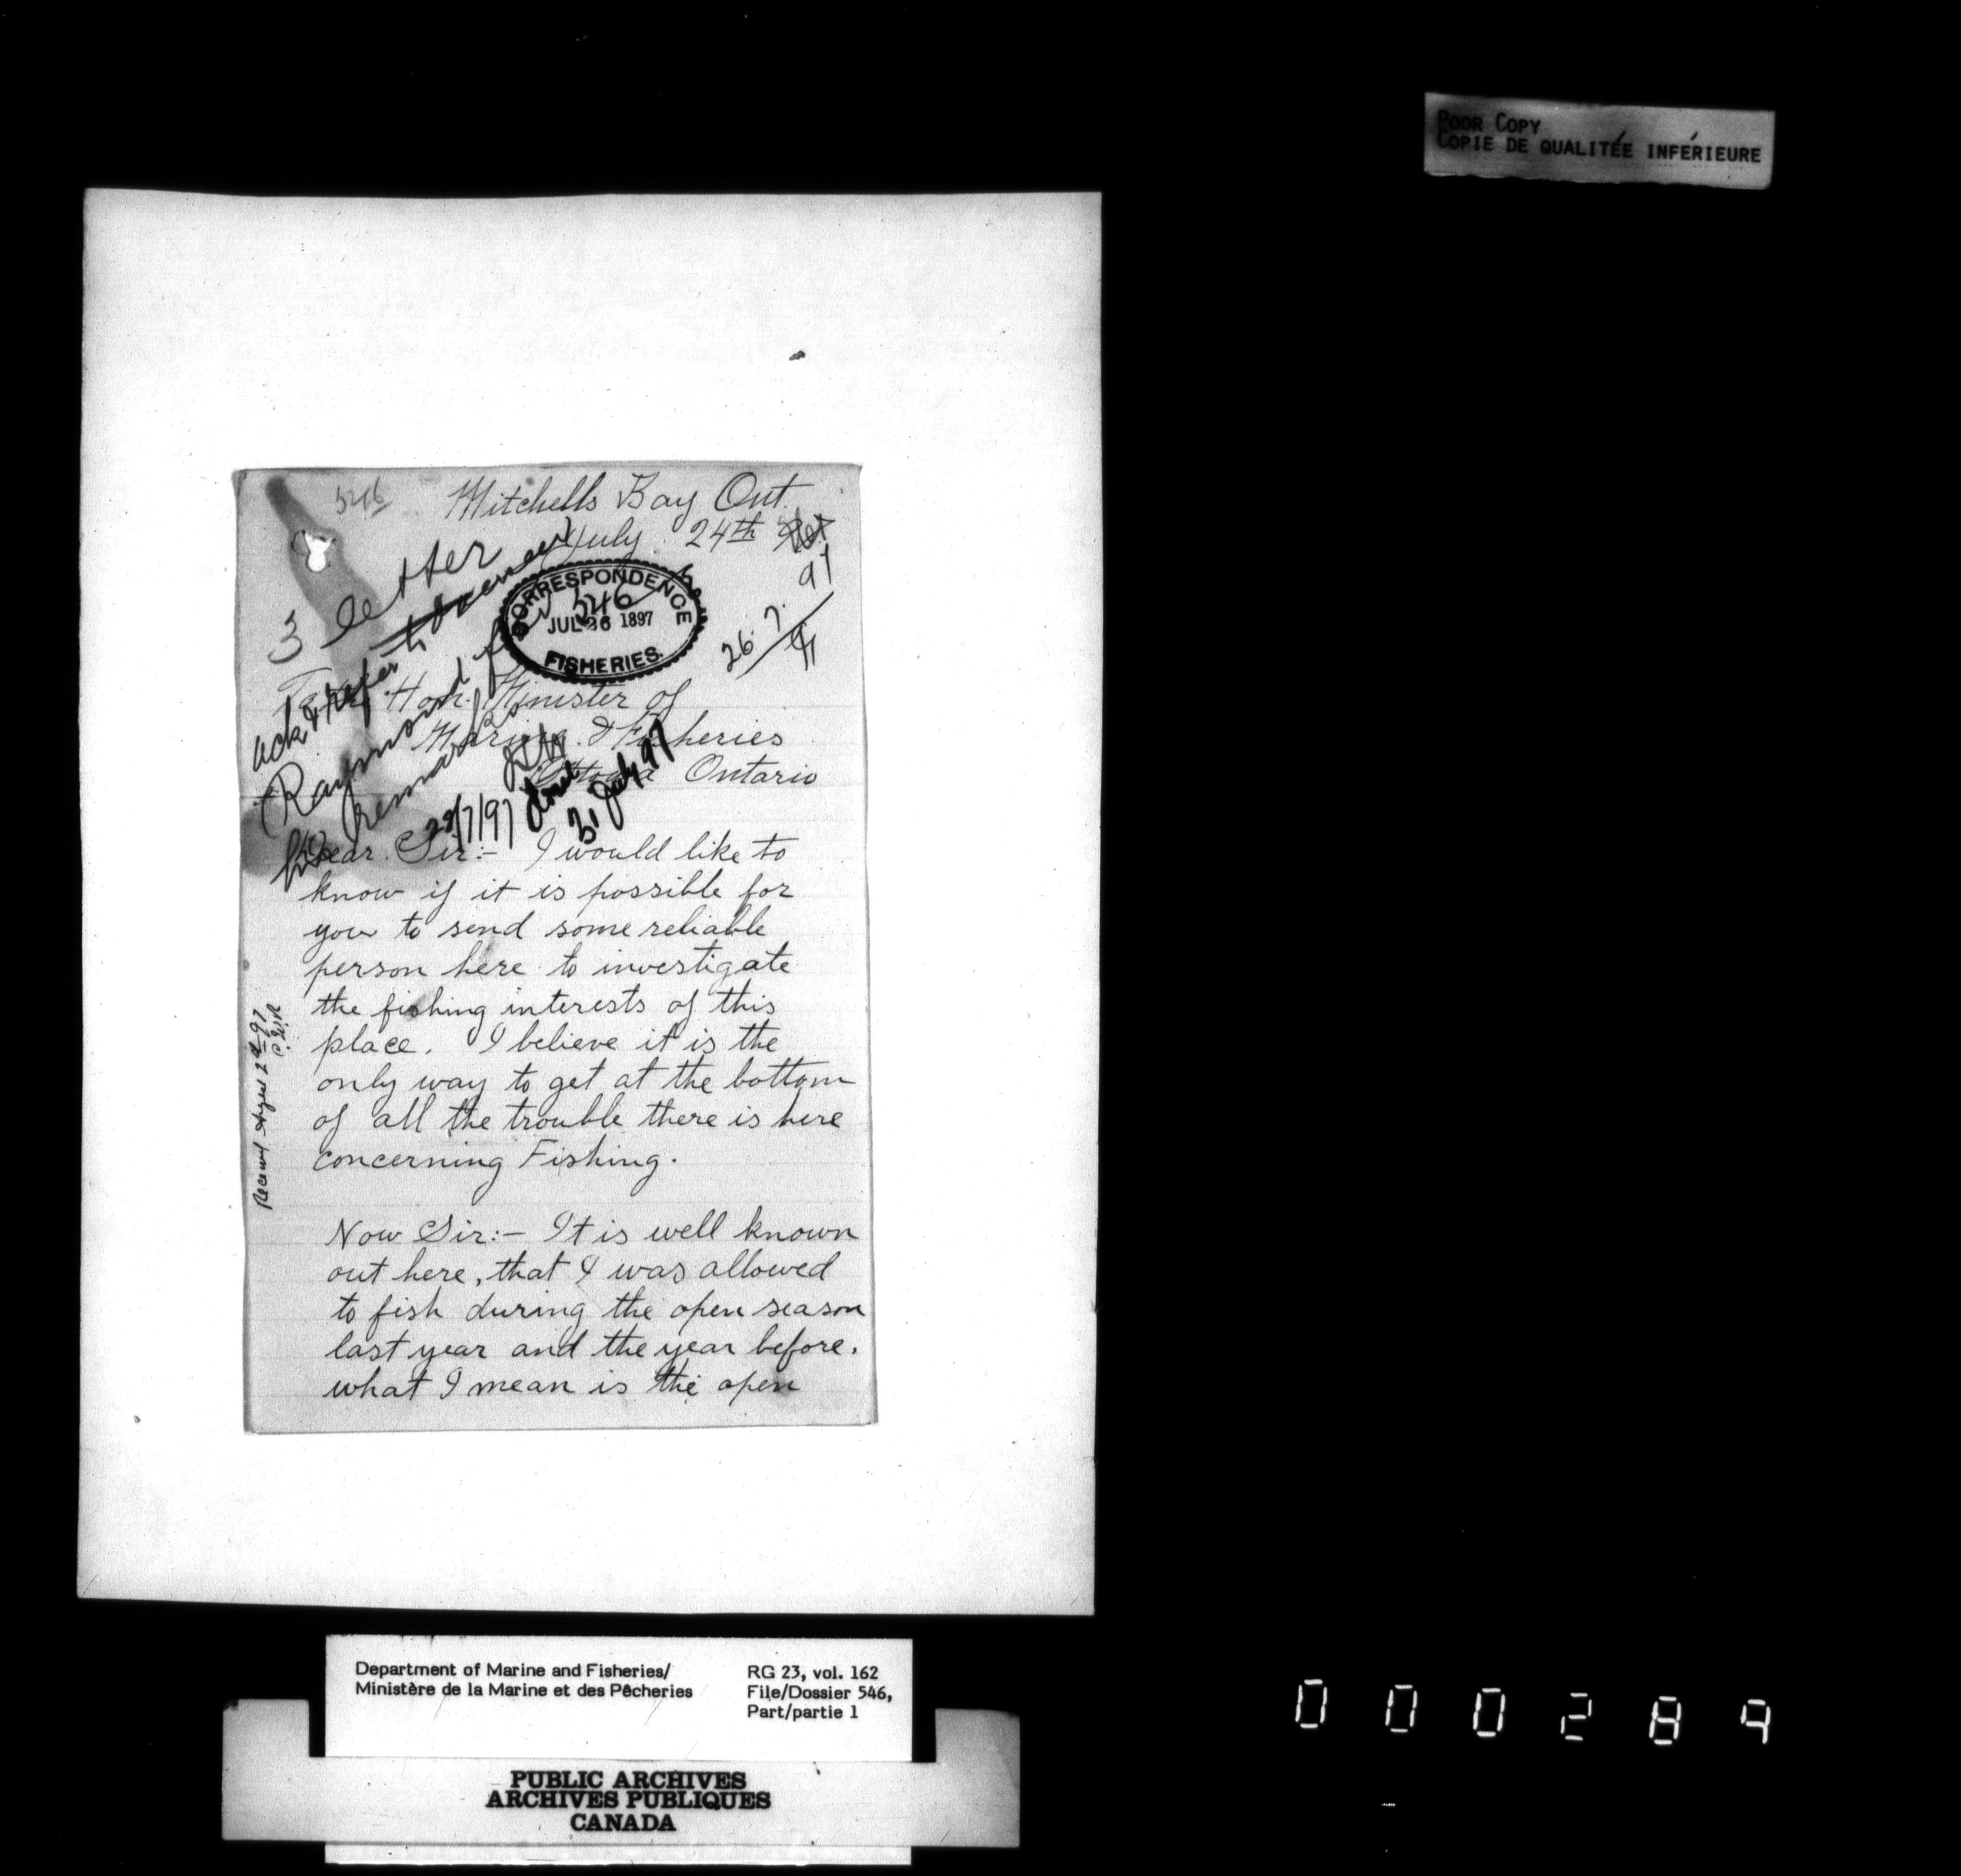 POOR COPY
COPIE DE QUALITÉE INFÉRIEURE
546
Mitchells Bay Ont.
July 24th
97
3 letter
CORRESPONDENCE
546
JUL 26 1897
FISHERIES.
26.7.97
To the Hon. Minister of
Marine & Fisheries
Ottowa Ontario
ack & refer to
Raymond for
his remarks
29/7/97
31 July 97
Dear Sir:- I would like to
know if it is possible for
you to send some reliable
person here to investigate
the fishing interests of this
place. I believe it is the
only way to get at the bottom
of all the trouble there is here
concerning Fishing.
Now Sir:- It is well known
out here, that I was allowed
to fish during the open season
last year and the year before.
what I mean is the open
Department of Marine and Fisheries/
Ministère de la Marine et des Pêcheries
RG 23, vol. 162
File/Dossier 546,
Part/partie 1
PUBLIC ARCHIVES
ARCHIVES PUBLIQUES
CANADA
000289